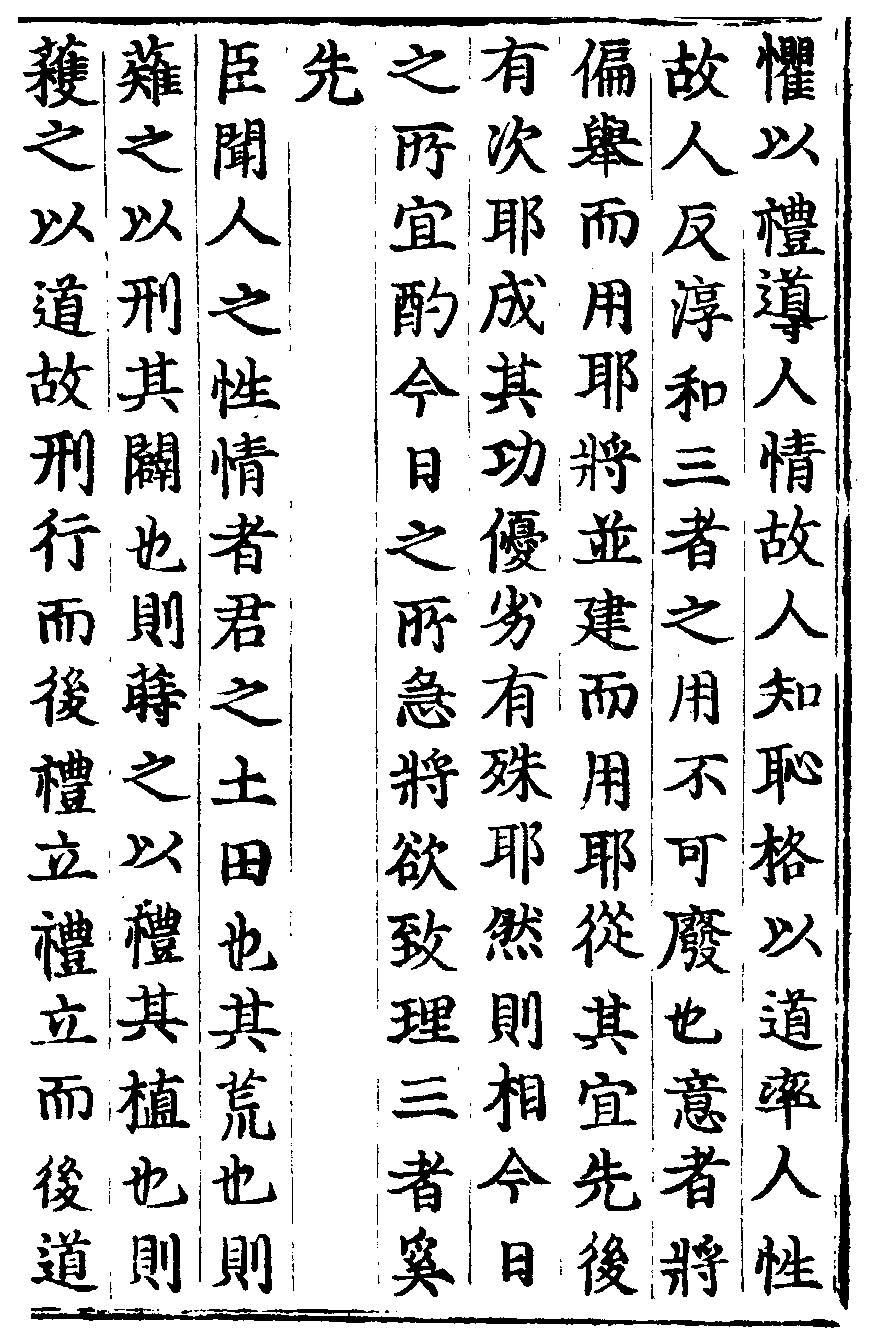 懼以禮導人情故人知恥格以道率人性
故人反淳和三者之用不可廢也意者將
偏舉而用耶將並建而用耶從其宜先後
有次耶成其功優劣有殊耶然則相今日
之所宜酌今日之所急將欲致理三者奚
先
臣聞人之性情者君之土田也其荒也則
薙之以刑其闢也則蒔之以禮其植也則
蓷之以道故刑行而後禮立禮立而後道